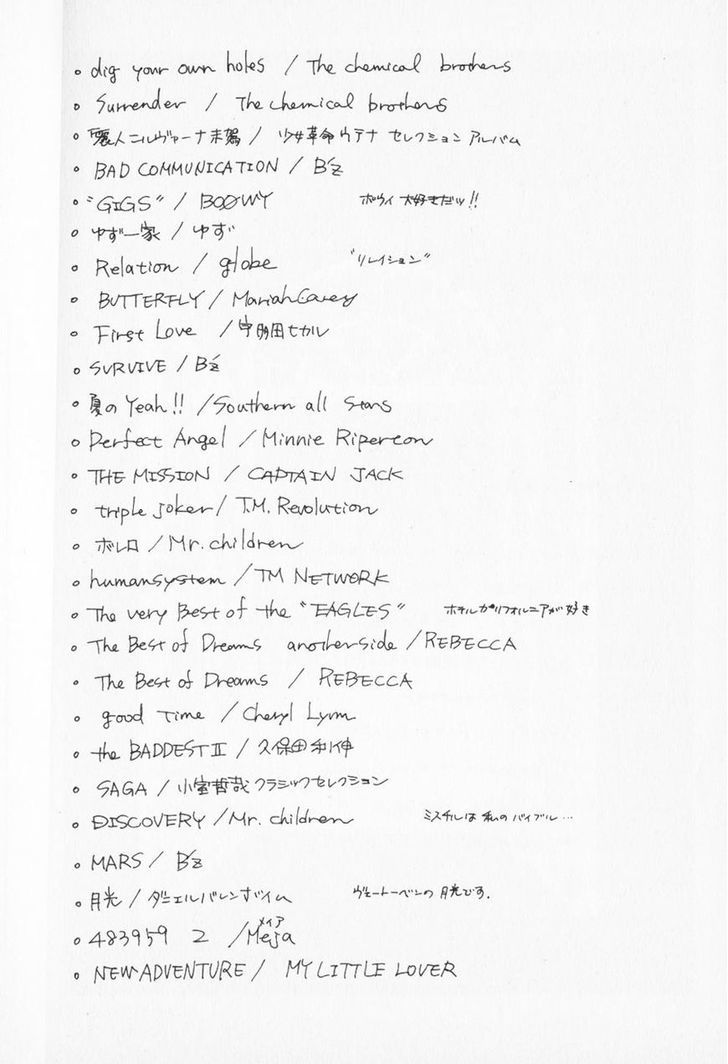 • dig your own holes / The chemical brothers
• Surrender / The chemical brothers
• 麗人ニルヴァーナ来駕 / 少女革命ウテナ セレクション アルバム
• BAD COMMUNICATION / B'z
• "GIGS" / BOØWY ボウイ 大好きだッ!!
• ゆず一家 / ゆず
• Relation / globe "リレイション"
• BUTTERFLY / Mariah Carey
• First Love / 宇多田ヒカル
• SURVIVE / B'z
• 夏の Yeah!! / Southern all Stars
• Perfect Angel / Minnie Ripereon
• THE MISSION / CAPTAIN JACK
• triple joker / T.M. Revolution
• ボレロ / Mr. children
• humansystem / TM NETWORK
• The very Best of the "EAGLES" ホテルカリフォルニアが好き
• The Best of Dreams another side / REBECCA
• The Best of Dreams / REBECCA
• good Time / Cheryl Lynn
• the BADDEST II / 久保田利伸
• SAGA / 小室哲哉クラシックセレクション
• DISCOVERY / Mr. children ミスチルは 私の バイブル…
• MARS / B'z
• 月光 / ダニエルバレンボイム ヴェートーベンの 月光です.
メイア
• 483959 2 / Meja
• NEW ADVENTURE / MY LITTLE LOVER